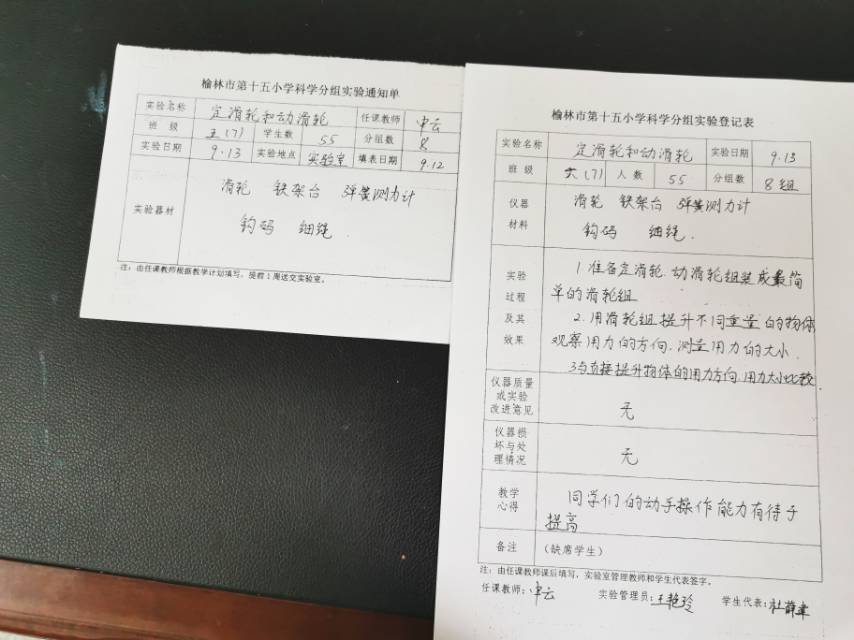 榆林市第十五小学科学分组实验通知单
实验名称 定滑轮和动滑轮 任课教师 申云
班 级 五(7) 学生数 55 分组数 8
实验日期 9.13 实验地点 实验室 填表日期 9.12
实验器材
滑轮 铁架台 弹簧测力计
钩码 细绳
注：由任课教师根据教学计划填写，提前1周送交实验室。
榆林市第十五小学科学分组实验登记表
实验名称 定滑轮和动滑轮 实验日期 9.13
班 级 六(7) 人 数 55 分组数 8组
仪器
材料
滑轮 铁架台 弹簧测力计
钩码 细绳.
实验
过程
及其
效果
1.准备定滑轮.动滑轮组装成最简
单的滑轮组
2.用滑轮组提升不同重量的物体
观察用力的方向.测量用力的大小.
3与直接提升物体的用力方向.用力大小比较.
仪器质量
或实验
改进意见
无
仪器损
坏与处
理情况
无
教学
心得
同学们的动手操作能力有待于
提高
备注 (缺席学生)
注：由任课教师课后填写，实验室管理教师和学生代表签字。
任课教师：申云 实验管理员：王艳玲 学生代表：